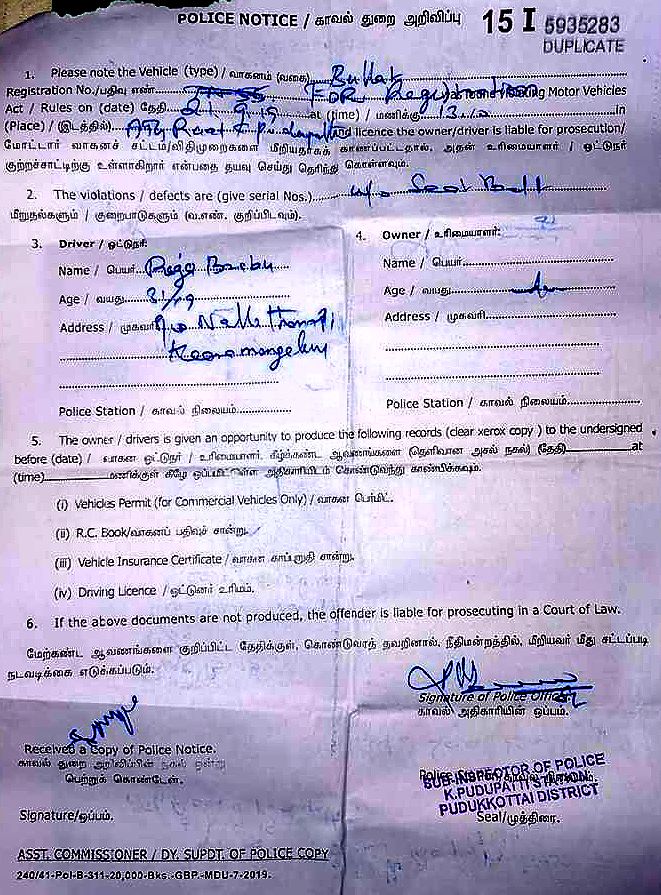 POLICE NOTICE / காவல் துறை அறிவிப்பு 15 I 5935283
DUPLICATE
1. Please note the Vehicle (type) / வாகனம் (வகை) Bullet
Registration No./பதிவு எண் FOR Registration Motor Vehicles
Act / Rules on (date) தேதி 21.9.19 at (time) / மணிக்கு in
(Place) / (இடத்தில்) and licence the owner/driver is liable for prosecution/
மோட்டார் வாகனச் சட்டம்/விதிமுறைகளை மீறியதாகக் காணப்பட்டதால், அதன் உரிமையாளர் / ஓட்டுநர்
குற்றச்சாட்டிற்கு உள்ளாகிறார் என்பதை தயவு செய்து தெரிந்து கொள்ளவும்.
2. The violations / defects are (give serial Nos.) w/o Seat Belt
மீறுதல்களும் / குறைபாடுகளும் (வ.எண். குறிப்பிடவும்).
3. Driver / ஓட்டுநர்:
Name / பெயர்
Age / வயது 31/19
Address / முகவரி
Police Station / காவல் நிலையம்
4. Owner / உரிமையாளர்:
Name / பெயர்
Age / வயது
Address / முகவரி
Police Station / காவல் நிலையம்
5. The owner / drivers is given an opportunity to produce the following records (clear xerox copy ) to the undersigned
before (date) / வாகன ஓட்டுநர் / உரிமையாளர், கீழ்க்கண்ட ஆவணங்களை (தெளிவான அசல் நகல்) (தேதி) at
(time) மணிக்குள் கீழே ஒப்பமிட்டுள்ள அதிகாரியிடம் கொண்டுவந்து காண்பிக்கவும்.
(i) Vehicles Permit (for Commercial Vehicles Only) / வாகன பெர்மிட்.
(ii) R.C. Book/வாகனப் பதிவுச் சான்று.
(iii) Vehicle Insurance Certificate / வாகன காப்புறுதி சான்று.
(iv) Driving Licence / ஓட்டுனர் உரிமம்.
6. If the above documents are not produced, the offender is liable for prosecuting in a Court of Law.
மேற்கண்ட ஆவணங்களை குறிப்பிட்ட தேதிக்குள், கொண்டுவரத் தவறினால், நீதிமன்றத்தில், மீறியவர் மீது சட்டப்படி
நடவடிக்கை எடுக்கப்படும்.
Signature of Police Officer
காவல் அதிகாரியின் ஒப்பம்.
Received a Copy of Police Notice.
காவல் துறை அறிவிப்பின் நகல் ஒன்று
பெற்றுக் கொண்டேன்.
SUB-INSPECTOR OF POLICE
K.PUDUPATTI STATION
PUDUKKOTTAI DISTRICT
Signature/ஒப்பம்.
Seal/முத்திரை.
ASST. COMMISSIONER / DY. SUPDT. OF POLICE COPY
240/41-Pol-B-311-20,000-Bks.-GBP.-MDU-7-2019.